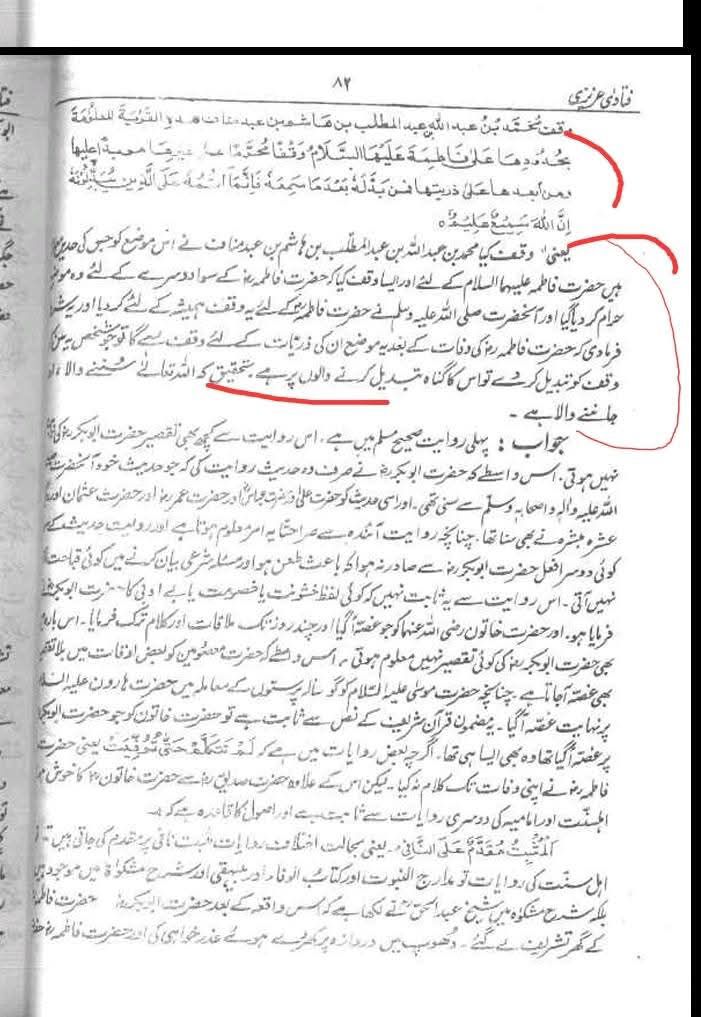 ۸۲
فتاویٰ عزیزی
وقف محمد بن عبد الله بن عبد المطلب بن هاشم بن عبد مناف هذه القرية المعلومة
بحدودها على فاطمة عليها السلام وقفا محرما على غيرها مؤبدا عليها
ومن بعدها على ذريتها فمن بدله بعد ما سمعه فانما اثمه على الذين يبدلونه
ان الله سميع عليم ٥
یعنی وقف کیا محمد بن عبداللہ بن عبدالمطلب بن ہاشم بن عبد مناف نے اس موضع کو جس کی حدیں
ہیں حضرت فاطمہ علیہا السلام کے لئے اور ایسا وقف کیا کہ حضرت فاطمہؓ کے سوا دوسرے کے لئے وہ
حرام کر دیا گیا اور آنحضرت صلی اللہ علیہ وسلم نے حضرت فاطمہؓ کے لئے یہ وقف ہمیشہ کے لئے کر دیا اور یہ
فرما دی کہ حضرت فاطمہؓ کی وفات کے بعد یہ موضع ان کی ذریات کے لئے وقف رہے گا تو جو شخص یہ
وقف کو تبدیل کر دے تو اس کا گناہ تبدیل کرنے والوں پر ہے تحقیق کہ اللہ تعالےٰ سننے والا
جاننے والا ہے ۔
جواب : پہلی روایت صحیح مسلم میں ہے ۔ اس روایت سے کچھ بھی تقصیر حضرت ابوبکرؓ کی
نہیں ہوتی ۔ اس واسطے کہ حضرت ابوبکرؓ نے صرف وہ حدیث روایت کی کہ جو حدیث خود آنحضرت
اللہ علیہ وآلہ واصحابہ وسلم سے سنی تھی ۔ اور اسی حدیث کو حضرت علی و حضرت عباس اور حضرت عمرؓ اور حضرت عثمان اور
عشرہ مبشرہ نے بھی سنا تھا ۔ چنانچہ روایت آئندہ سے صراحتاً یہ امر معلوم ہوتا ہے اور روایت حدیث کے
کوئی دوسرا فعل حضرت ابوبکرؓ سے صادر نہ ہوا کہ باعث طعن ہو اور مسئلہ شرعی بیان کرنے میں کوئی قباحت
نہیں آتی ۔ اس روایت سے یہ ثابت نہیں کہ کوئی لفظ خشونت یا خصومت یا بے ادبی کا حضرت ابوبکرؓ
فرمایا ہو ۔ اور حضرت خاتون رضی اللہ عنہا کو جو غصّہ آگیا اور چند روز تک ملاقات اور کلام ترک فرمایا ۔ اس بارہ
بھی حضرت ابوبکرؓ کی کوئی تقصیر نہیں معلوم ہوتی ۔ اس واسطے کہ حضرت معصومین کو بعض اوقات میں بلا
بھی غصّہ آجاتا ہے ۔ چنانچہ حضرت موسیٰ علیہ السلام کو گوسالہ پرستوں کے معاملہ میں حضرت ہارون علیہ
پر نہایت غصّہ آگیا ۔ یہ مضمون قرآن شریف کے نص سے ثابت ہے تو حضرت خاتون کو جو حضرت
پر غصّہ آگیا تھا وہ بھی ایسا ہی تھا ۔ اگرچہ بعض روایات میں ہے کہ لَمْ تَتَكَلَّمْ حَتّٰى تُوُفِّيَتْ یعنی حضرت
فاطمہؓ نے اپنی وفات تک کلام نہ کیا ۔ لیکن اس کے علاوہ حضرت صدیقؓ سے حضرت خاتونؓ کا خوش
اہلسنّت اور امامیہ کی دوسری روایات سے ثابت ہے اور اصول کا قاعدہ ہے کہ :
اَلْمُثْبِتُ مُقَدَّمٌ عَلَى النَّافِي یعنی بحالت اختلاف روایات مثبت نافی پر مقدم کی جاتی ہیں
اہل سنت کی روایات تو مدارج النبوت اور کتاب الوفاء اور بیہقی اور شرح مشکوٰة میں موجود ہیں
بلکہ شرح مشکوٰة میں شیخ عبدالحقؒ نے لکھا ہے کہ اس واقعہ کے بعد حضرت ابوبکرؓ حضرت فاطمہ
کے گھر تشریف لے گئے ۔ دھوپ میں دروازہ پر کھڑے ہوئے عذر خواہی کی اور حضرت فاطمہؓ